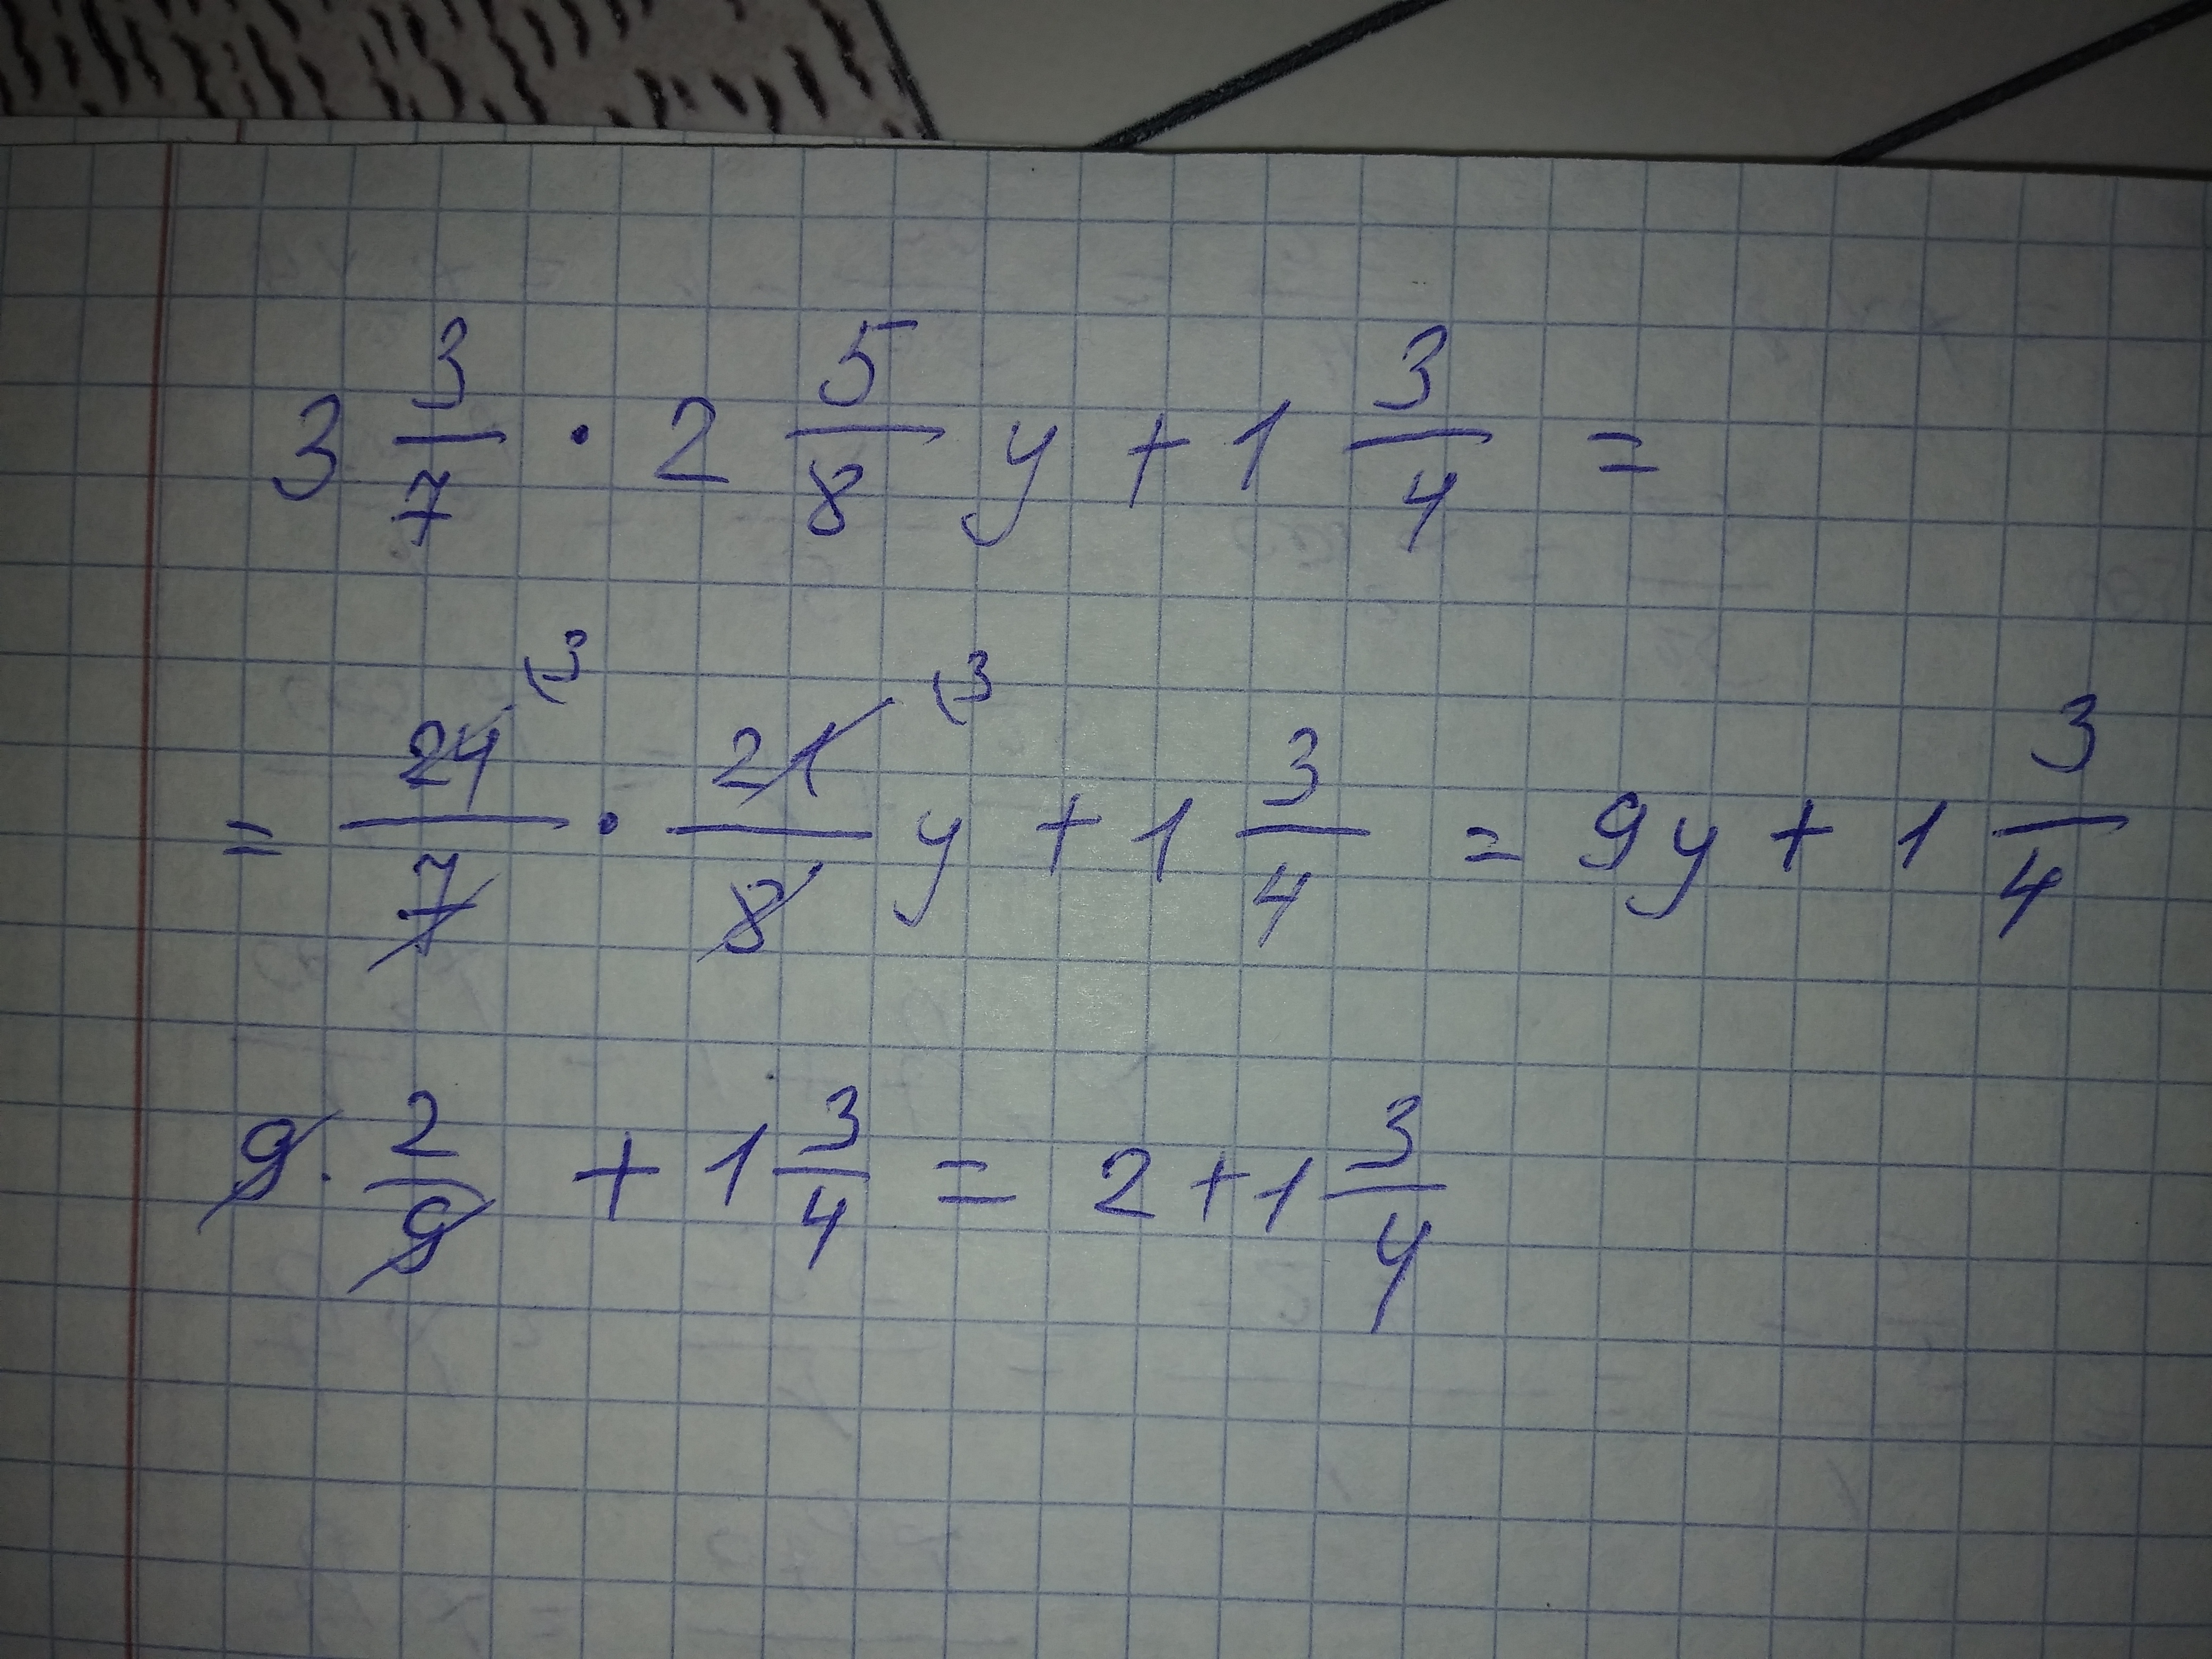 3 3/7 · 2 5/8 y + 1 3/4 =
= 24/7 (3 · 21/8 (3 y + 1 3/4 = 9y + 1 3/4
9 · 2/9 + 1 3/4 = 2 + 1 3/4